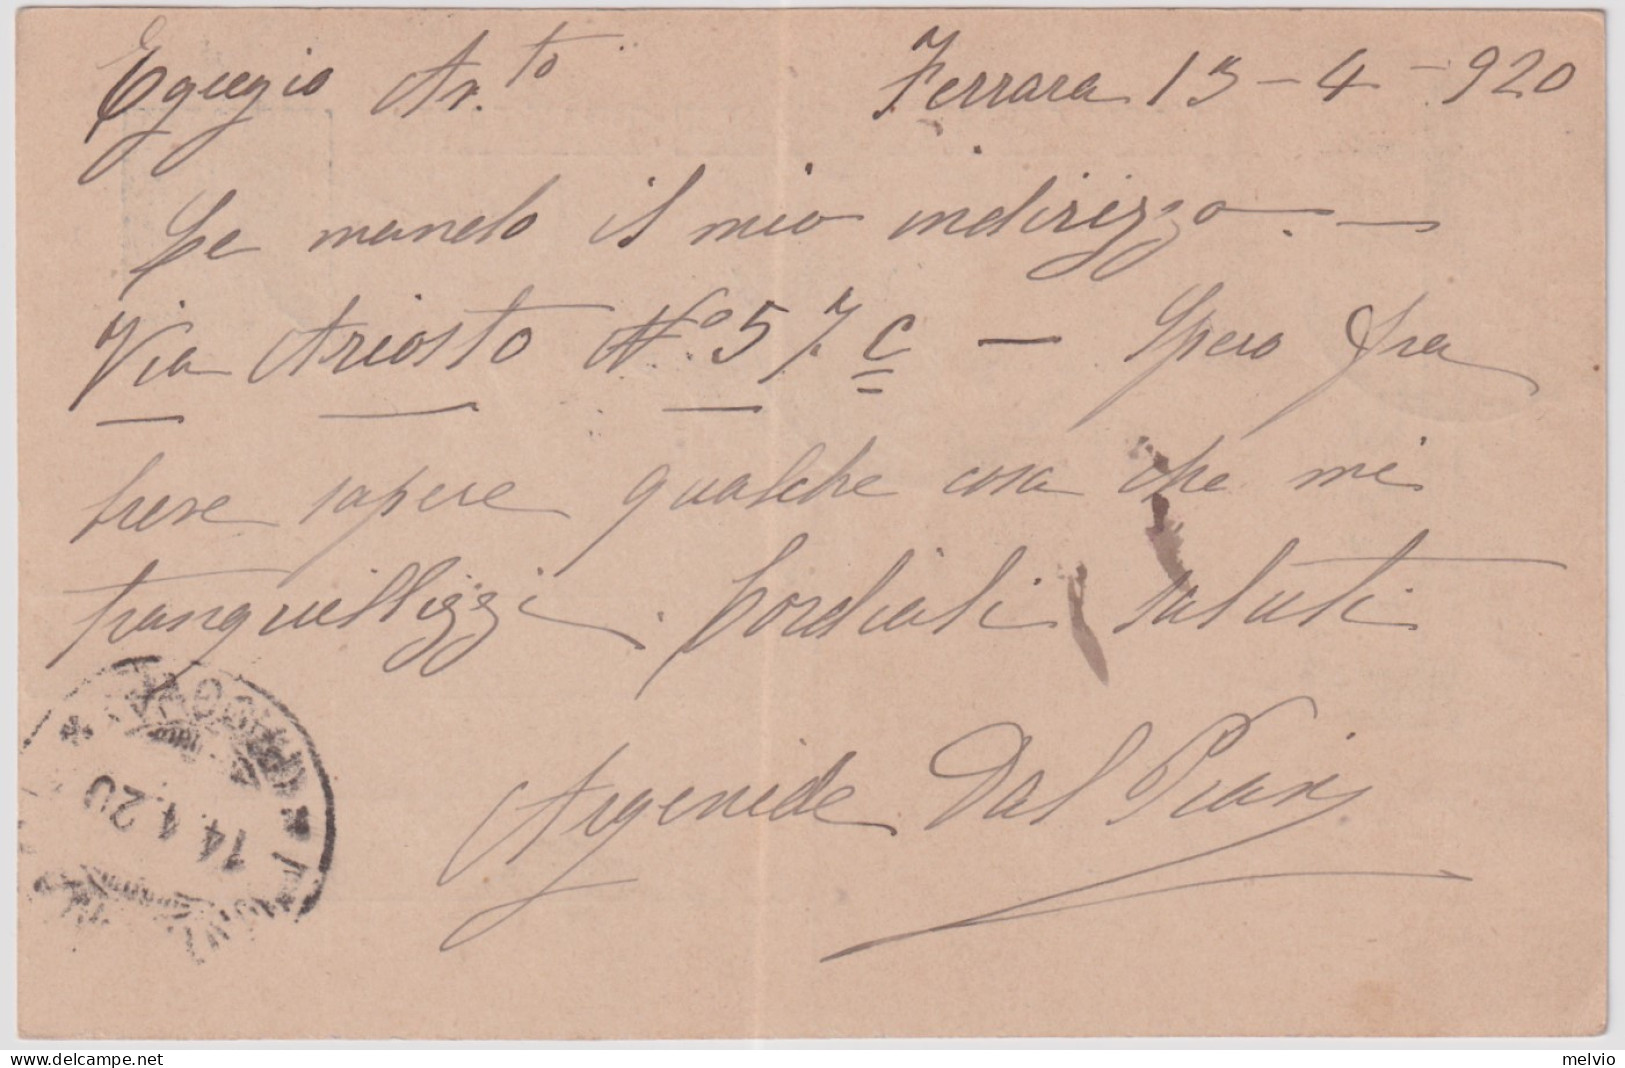 Egregio Av.to Ferrara 13-4-920
Le mando il mio indirizzo. —
Via Ariosto No. 57. c — Spero fra
breve sapere qualche cosa che mi
tranquillizzi. Cordiali saluti
Argenide Dal
14.4.20
melvio